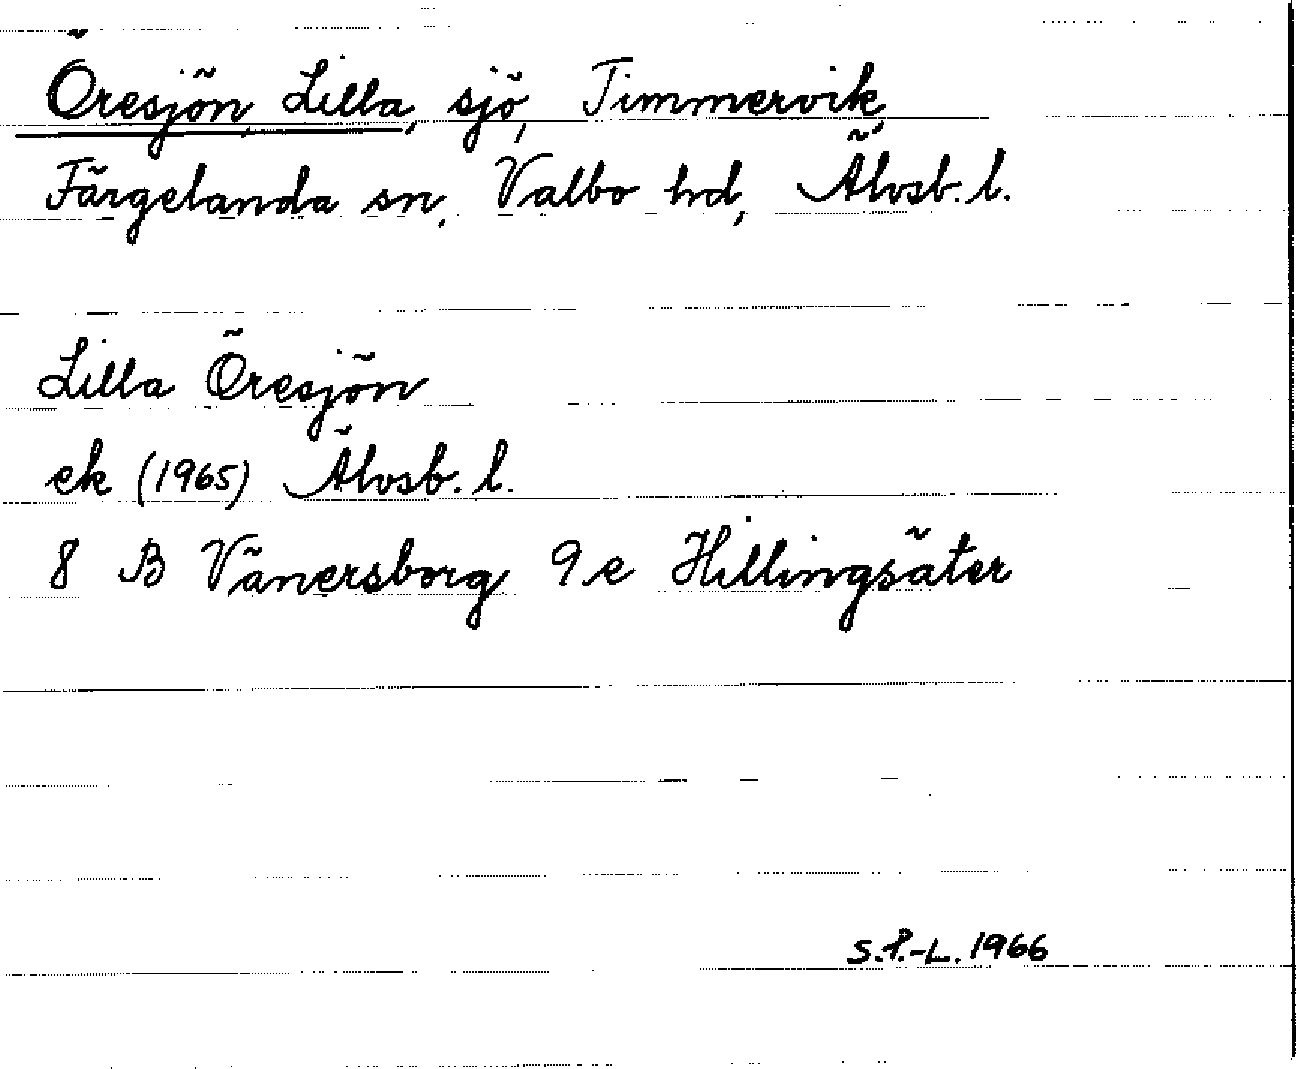 Öresjön, Lilla, sjö, Timmervik,
Färgelanda sn, Valbo hd, Älvsb. l.
Lilla Öresjön
ek (1965) Älvsb. l.
8 B Vänersborg 9 e Hillingsäter
S.P.-L. 1966